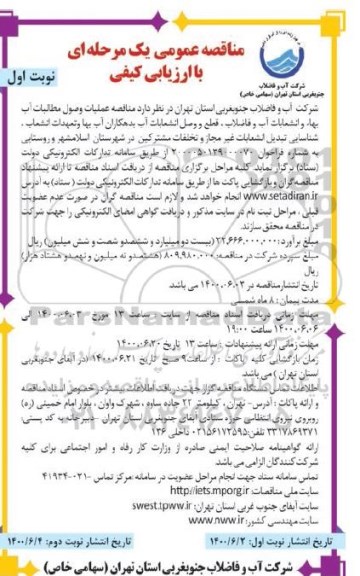 مناقصه عمومی یک مرحله ای
با ارزیابی کیفی
نوبت اول
شرکت آب و فاضلاب
جنوبغربی استان تهران (سهامی خاص)
شرکت آب و فاضلاب جنوبغربی استان تهران در نظر دارد مناقصه عملیات وصول مطالبات آب
بها، و انشعابات آب و فاضلاب، قطع و وصل انشعابات آب بدهکاران آب بها وتعهدات انشعاب،
شناسایی تبدیل انشعابات غیر مجاز و تخلفات مشترکین در شهرستان اسلامشهر و روستایی
به شماره فراخوان از طریق سامانه تدارکات الکترونیکی دولت
(ستاد) برگزار نماید. کلیه مراحل برگزاری مناقصه از دریافت اسناد مناقصه تا ارائه پیشنهاد
مناقصه گران و بازگشایی پاکت ها از طریق سامانه تدارکات الکترونیکی دولت (ستاد) به آدرس
www.setadiran.ir انجام خواهد شد و لازم است مناقصه گران در صورت عدم عضویت
قبلی، مراحل ثبت نام در سایت مذکور و دریافت گواهی امضای الکترونیکی را جهت شرکت
در مناقصه محقق سازند.
مبلغ برآورد: ۲۲,۶۶۶,۰۰۰,۰۰۰ (بیست دو میلیارد و ششصدو شصت و شش میلیون) ریال
مبلغ سپرده شرکت در مناقصه: ۸۰۹,۹۸۰,۰۰۰ (هشتصدو نه میلیون و نهصدو هشتاد هزار)
ریال
تاریخ انتشارمناقصه در سامانه ۱۴۰۰.۰۶.۰۲ می باشد
مدت پیمان: ۸ ماه شمسی
مهلت زمانی دریافت اسناد مناقصه از سایت: ساعت ۱۳ مورخ ۱۴۰۰.۰۶.۰۳ الی
۱۴۰۰.۰۶.۰۶ ساعت ۱۹:۰۰
مهلت زمانی ارائه پیشنهادات: ساعت ۱۳ تاریخ ۱۴۰۰.۰۶.۲۰
زمان بازگشایی کلیه پاکات: از ساعت ۹ صبح تاریخ ۱۴۰۰.۰۶.۲۱ (در آبفای جنوبغربی
استان تهران) می باشد
اطلاعات تماس دستگاه مناقصه گزار جهت دریافت اطلاعات بیشتر در خصوص اسناد مناقصه
و ارائه پاکات: آدرس - تهران، کیلومتر ۲۲ جاده ساوه، شهرک واوان، بلوار امام خمینی (ره)
روبروی نیروی انتظامی حوزه ستادی آبفای جنوبغربی استان تهران
تلفن: ۰۲۱۵۶۱۷۲۵۹۵ داخلی ۱۳۶
ارائه گواهینامه صلاحیت ایمنی صادره از وزارت کار رفاه و امور اجتماعی برای کلیه
شرکت کنندگان الزامی می باشد.
تماس سامانه ستاد جهت انجام مراحل عضویت در سامانه: مرکز تماس ۰۲۱-۴۱۹۳۴
سایت ملی مناقصات: http://iets.mporg.ir
سایت آبفای جنوب غربی استان تهران: swest.tpww.ir
سایت مهندسی کشور: www.nww.ir
تاریخ انتشار نوبت اول: ۱۴۰۰/۶/۲
تاریخ انتشار نوبت دوم: ۱۴۰۰/۶/۴
شرکت آب و فاضلاب جنوبغربی استان تهران (سهامی خاص)